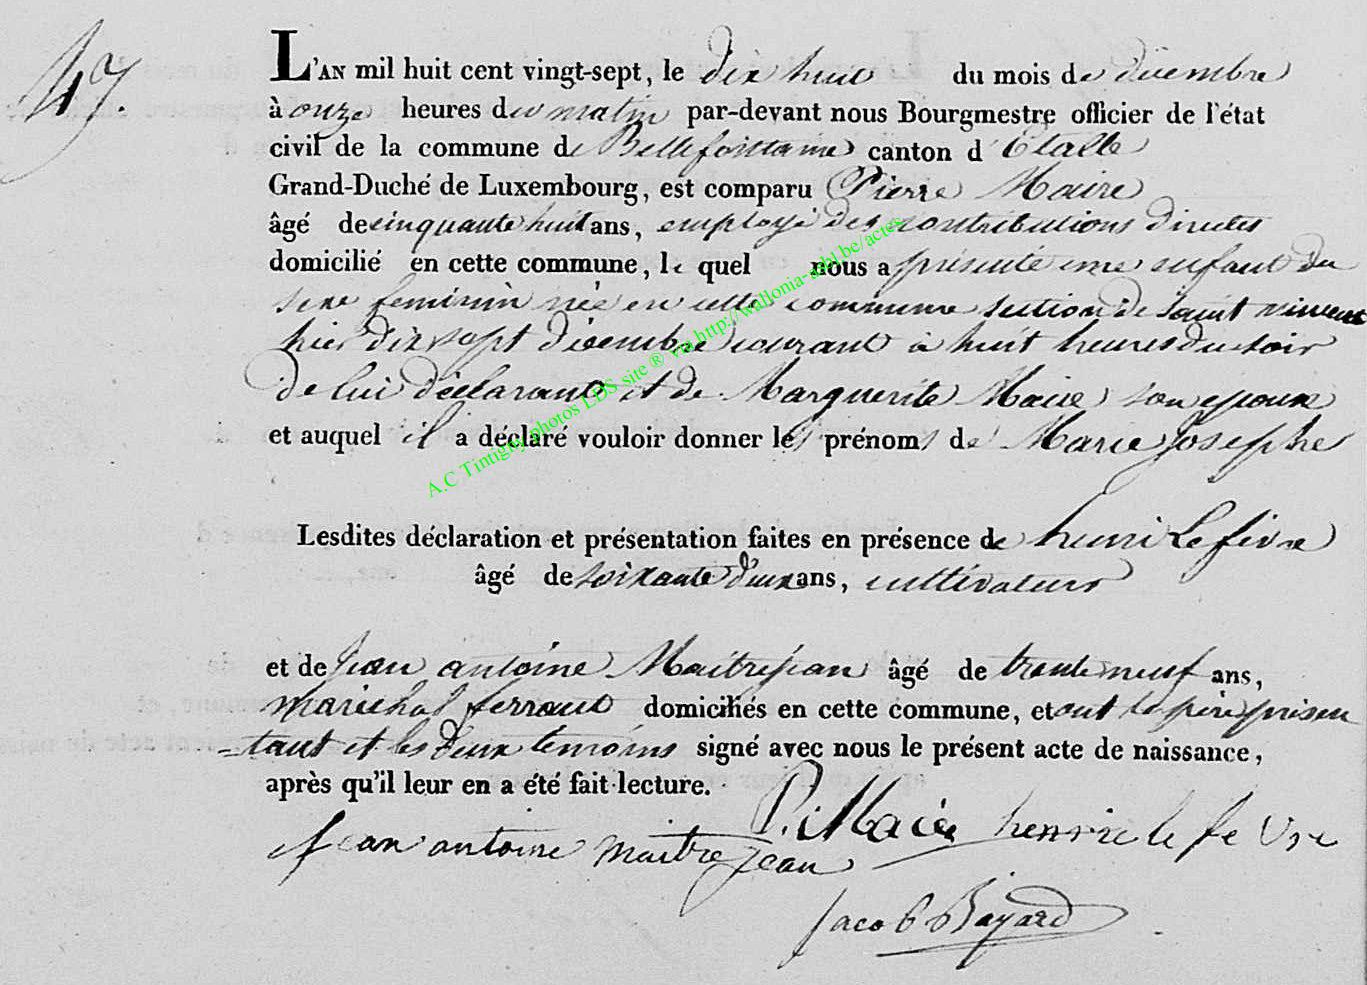 47.
L'AN mil huit cent vingt-sept, le dix huit du mois de décembre
à onze heures du matin par-devant nous Bourgmestre officier de l'état
civil de la commune de Bellefontaine canton d'Etalle
Grand-Duché de Luxembourg, est comparu Pierre Maire
âgé de cinquante huit ans, employé des contributions directes
domicilié en cette commune, le quel nous a présenté une enfant du
sexe feminin née en cette commune section de Saint vincent
hier dix sept décembre courant à huit heures du soir
de lui déclarant et de Marguerite Maire son epouse
et auquel il a déclaré vouloir donner les prénoms de Marie Josephe
Lesdites déclaration et présentation faites en présence de henri Lefevre
âgé de soixante deux ans, cultivateur
et de Jean antoine Maitrejean âgé de trente neuf ans,
marichal ferrant domiciliés en cette commune, et ont le père présen
-tant et les deux témoins signé avec nous le présent acte de naissance,
après qu'il leur en a été fait lecture.
P. Maire henrie le fe Vre
Jean antoine maitre jean
Jacob Bayard
A.C Tintigny photos LDS site ® via http://wallonia-asbl.be/actes